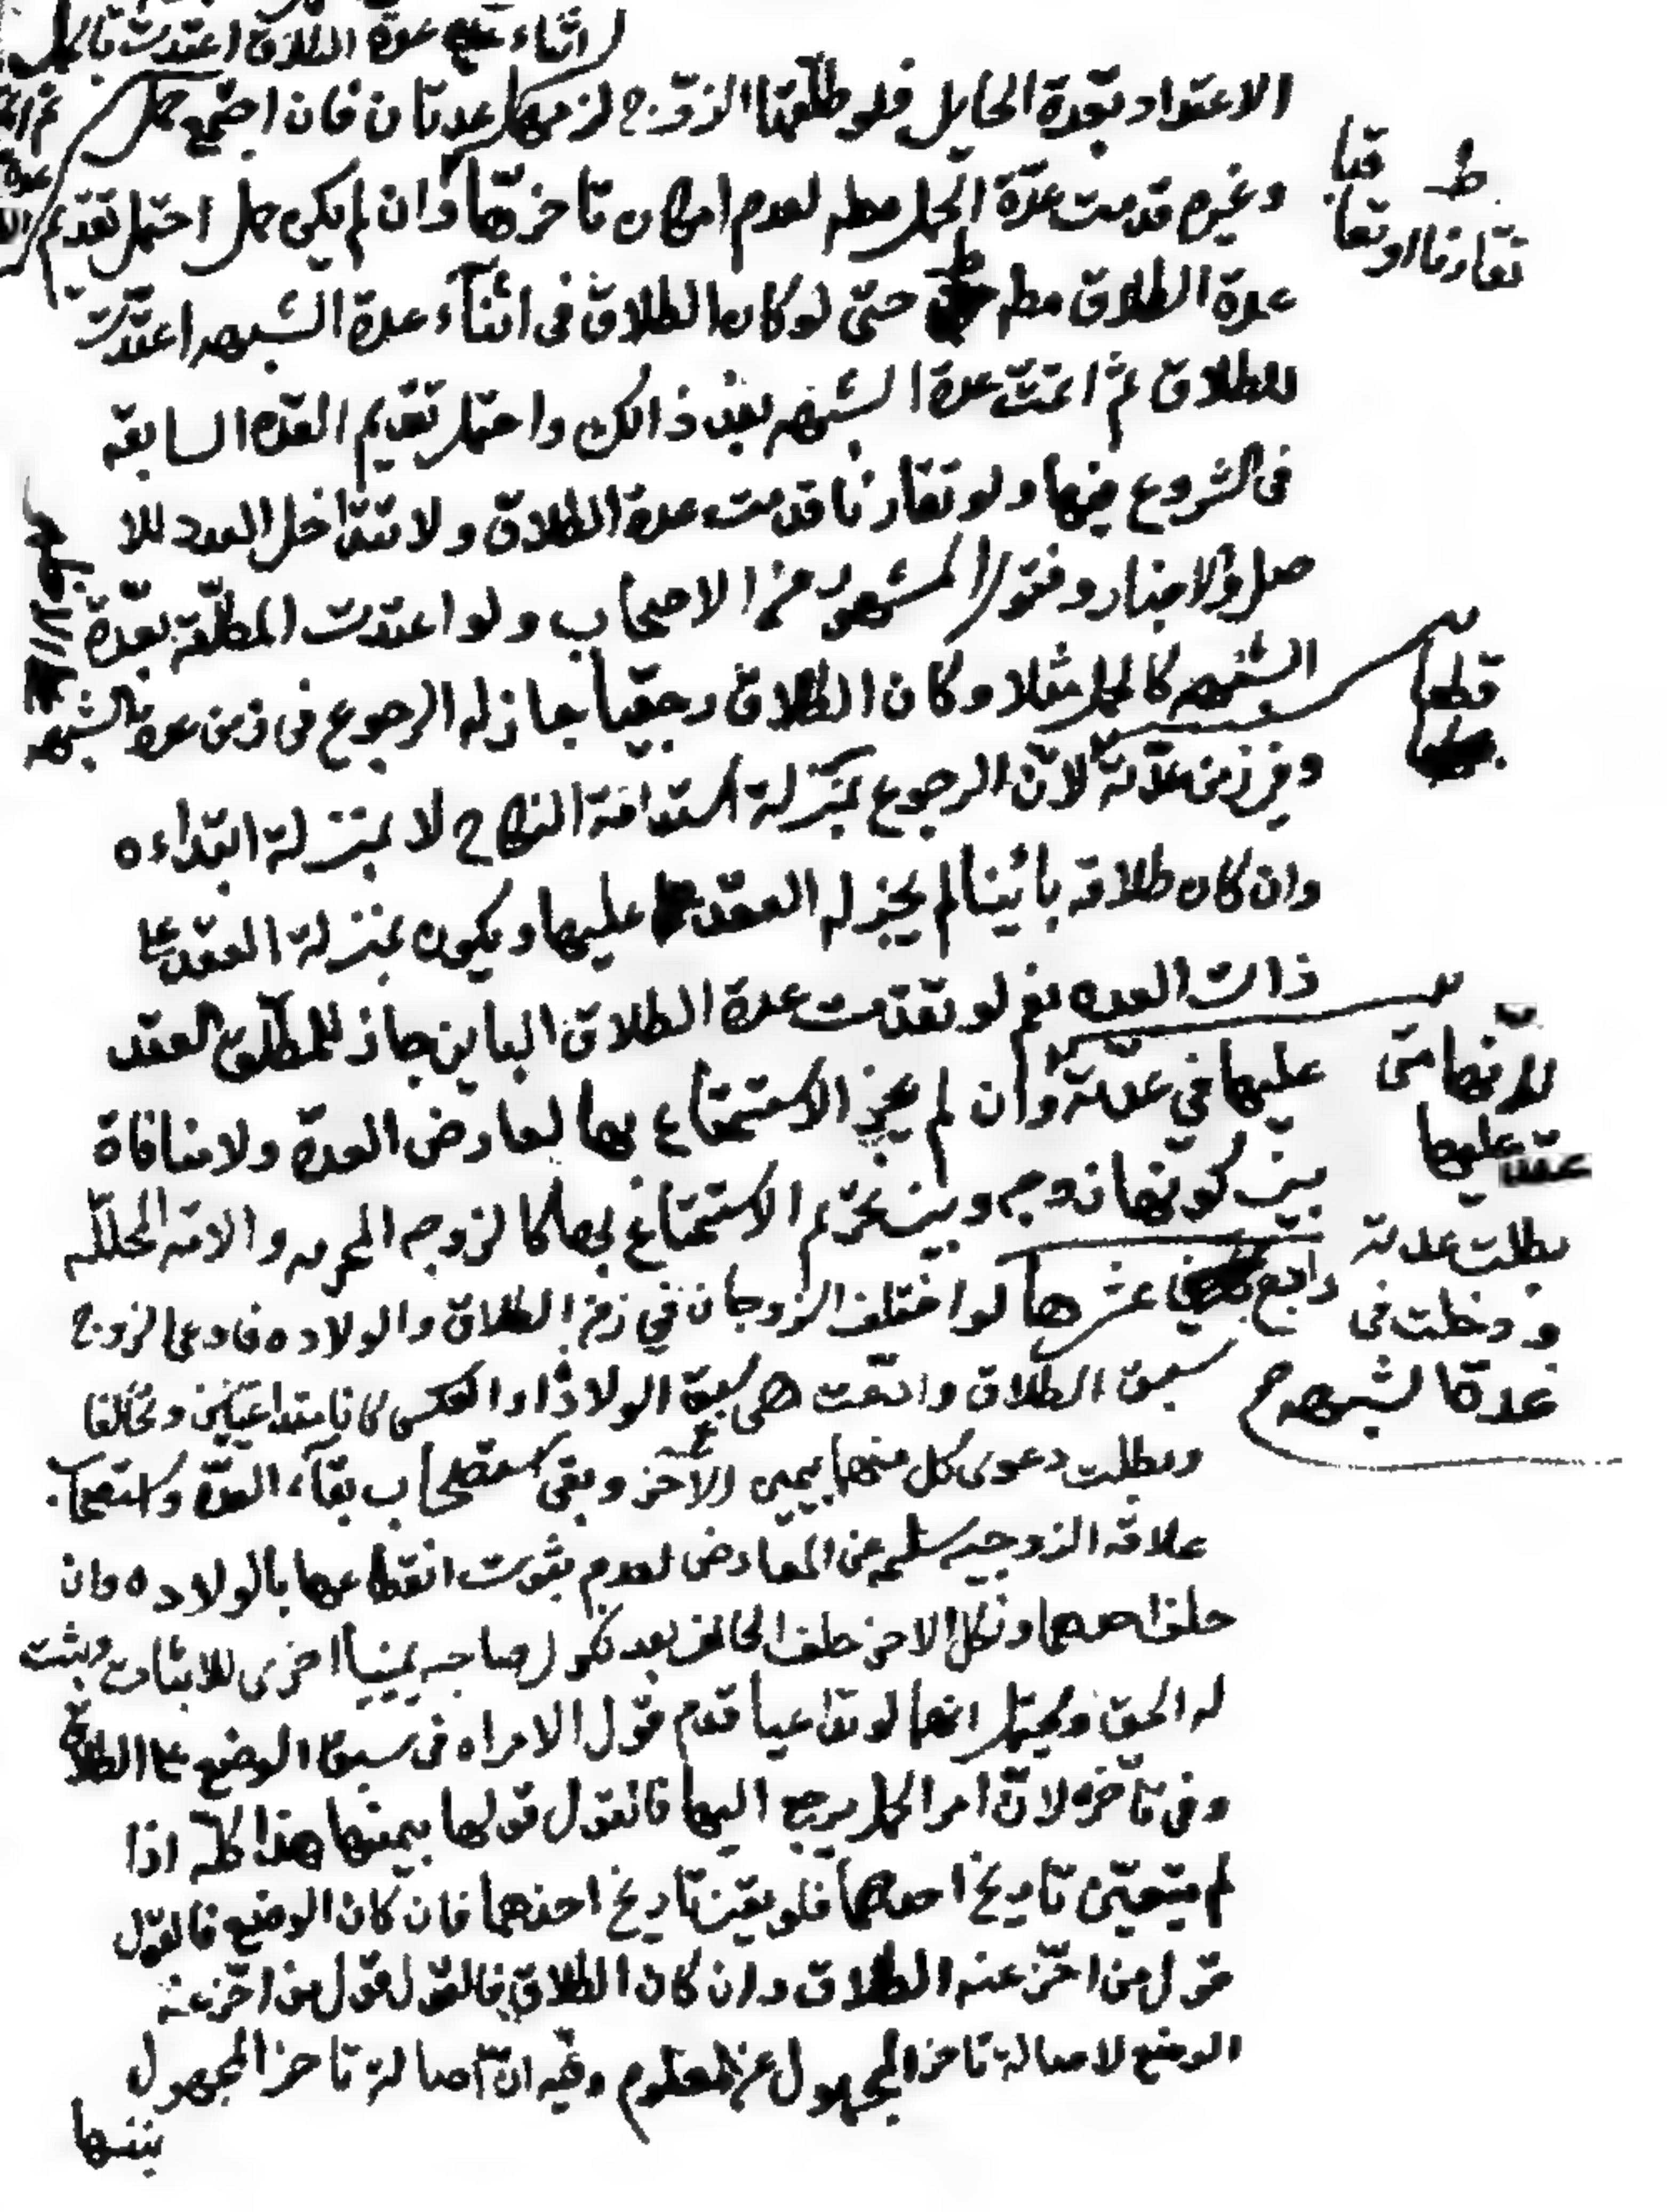 اثناء عدة الطلاق اعتدت باكمل
الاعتداد بعدة الحايل فلو طلقها الزوج لزمها عدتان فان اجتمع حمل
وغيره قدمت عدة الحمل مطلقا لعدم امكان تاخرها وان لم يكن حمل احتمل تقديم
عدة الطلاق مطلقا حتى لو كان الطلاق في اثناء عدة الشبهه اعتدت
للطلاق ثم اتمت عدة الشبهه بعد ذالك واحتمل تقديم العده السابقه
في الشروع فيها ولو تقارنا قدمت عدة الطلاق ولا تتداخل العدد للا
صل والاخبار وفتوى المشهور من الاصحاب ولو اعتدت المطلقه بعدة
الشبهه كالحمل مثلا وكان الطلاق رجعيا جاز له الرجوع في زمن عدة الشبهه
وفي زمن عدته لان الرجوع بمنزلة استدامة النكاح لا بمنزلة ابتداءه
وان كان طلاقه بائنا لم يجز له العقد عليها ويكون بمنزلة العقد على
ذات العده نعم لو تقدمت عدة الطلاق الباين جاز للمطلق العقد
عليها في عدته وان لم يجز الاستمتاع بها لعارض العدة ولا منافاة
بين كونها زوجه وبين تحريم الاستمتاع بها كالزوجه المحرمه والامه المحلله
رابع عشرها لو اختلف الزوجان في زمن الطلاق والولاده فادعى الزوج
سبق الطلاق وادعت هي سبق الولادة او العكس كانا متداعيين وتحالفا
وبطلت دعوى كل منهما بيمين الاخر وبقى استصحاب بقاء العدة واستصحاب
علاقه الزوجيه سليمه عن المعارض لعدم ثبوت انقطاعها بالولاده وان
حلف احدهما ونكل الاخر حلف الحالف بعد نكول صاحبه يمينا اخرى للاثبات ويثبت
له الحق ويحتمل انهما لو تداعيا قدم قول الامراه في سبق الوضع على الطلاق
وفي تاخره لان امر الحمل يرجع اليها فالقول قولها بيمينها هذا كله اذا
لم يتعين تاريخ احدهما فلو تعين تاريخ احدهما فان كان الوضع فالقول
قول من اخر عنه الطلاق وان كان الطلاق فالقول قول من اخر عنه
الوضع لاصالة تاخر المجهول عن المعلوم وفيه ان اصالة تاخر المجهول
بنفسها
تقارنا او تعاقبا
قطعا
لانها متى
عقد عليها
بطلت عدته
ودخلت في
عدة الشبهه